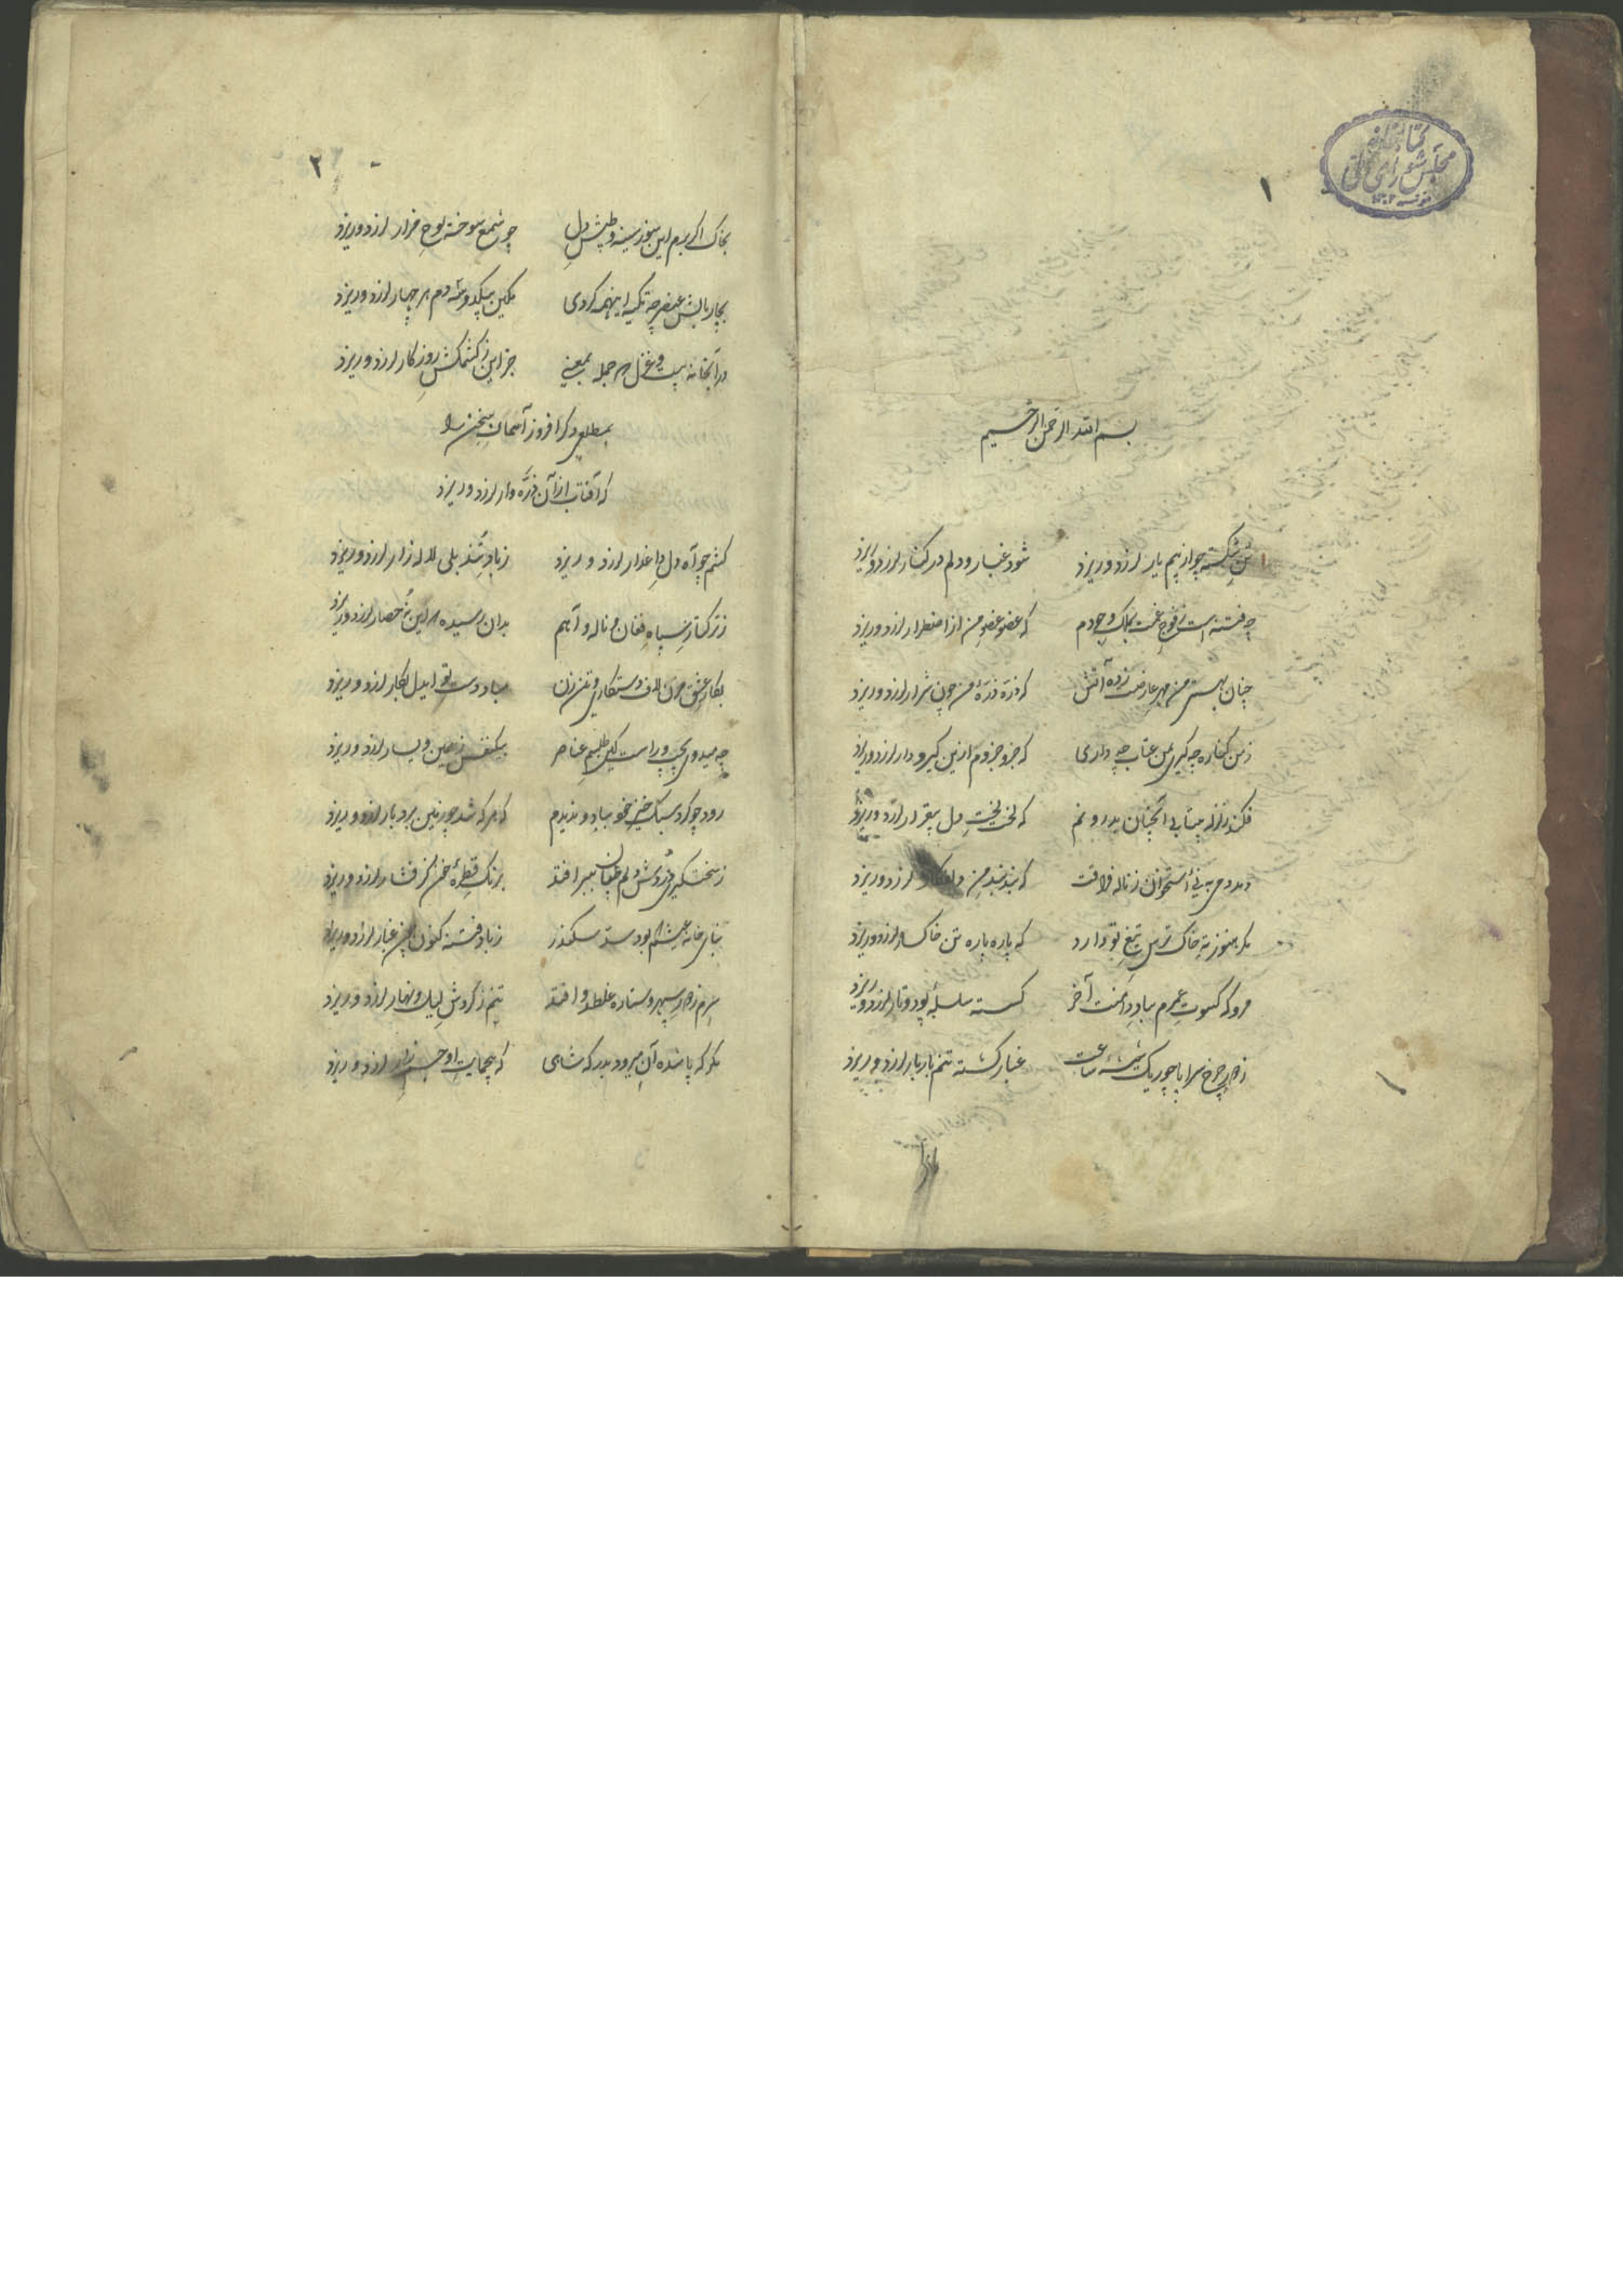 کتابخانه
مجلس شورای ملی
۱
بسم الله الرحمن الرحیم
تن شکسته چو از بیم یار لرزد و ریزد شود غبار و دلم در کنار لرزد و ریزد
چه فتنه است ز فوج غمت بملک وجودم که عضو عضو من از اضطرار لرزد و ریزد
چنان بهستی من مهر عارضت زده آتش که ذره ذرهٔ من چون شرار لرزد و ریزد
ز من کناره چه گیری بمن عتاب چه داری که جزو جزوم ازین گیر و دار لرزد و ریزد
فکند زلزله بیتابی آنچنان بدرونم که لخت لخت دل بیقرار لرزد و ریزد
دمد دمی به نی استخوان ز ناله فراقت که بند بند من لرزد و ریزد
مگر هنوز ته خاک ترس تیغ تو دارد که پاره پاره تن خاکسار لرزد و ریزد
مرو که کسوت عمرم بباد دامنت آخر گسسته سلسلهٔ پود و تار لرزد و ریزد
ز جور چرخ سراپا چو ریگ شیشهٔ ساعت غبار گشته تنم باربار لرزد و ریزد
۲
بخاک اگر برم این سوز سینه و طپش دل چو شمع سوخته لوح مزار لرزد و ریزد
بچار بالش عنصر چه تکیه اینهمه کردی مکین بیکدوسه دم هر چهار لرزد و ریزد
در آنجا نه بیت و غزل جمله بمعنی جز این ز کشمکش روزگار لرزد و ریزد
بمطلع دگر افروز آسمان سخن را
که آفتاب از آن ذره وار لرزد و ریزد
کشم چو آه دل داغدار لرزد و ریزد ز باد تند بلی لاله زار لرزد و ریزد
ز ترکتاز سپاه فغان و ناله و آهم بدان رسیده که این نه حصار لرزد و ریزد
بکار عشق مزن لاف دستکاری و تن زن مباد دست تو ایدل بکار لرزد و ریزد
چه میدوی بچپ و راست کاین طلسم عناصر بیکنفس ز یمین و یسار لرزد و ریزد
رود چو گرد سبک خیز خو بباد و ندیدم که هر که شد چو زمین بردبار لرزد و ریزد
ز سخت گیری دردش دلم طپان ببر افتد برنگ قطرهٔ خون کز فشار لرزد و ریزد
بنای خانهٔ عیشم بود سد سکندر ز باد فتنه کنون چون غبار لرزد و ریزد
سرم ز جور سپهر و ستاره غلطد و افتد تنم ز گردش لیل و نهار لرزد و ریزد
مگر که پا شده آن میرود بدرگه شاهی که بیحمایت او جسم زار لرزد و ریزد